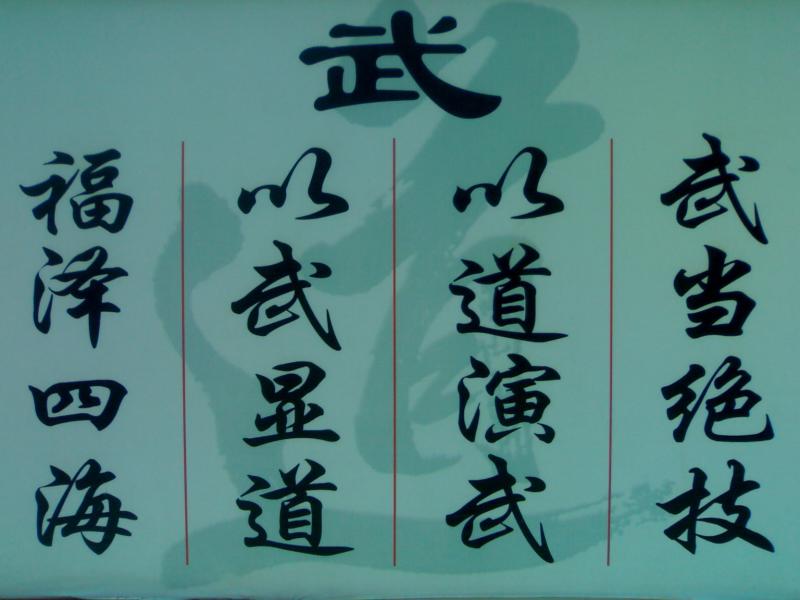 武
武当绝技
以道演武
以武显道
福泽四海